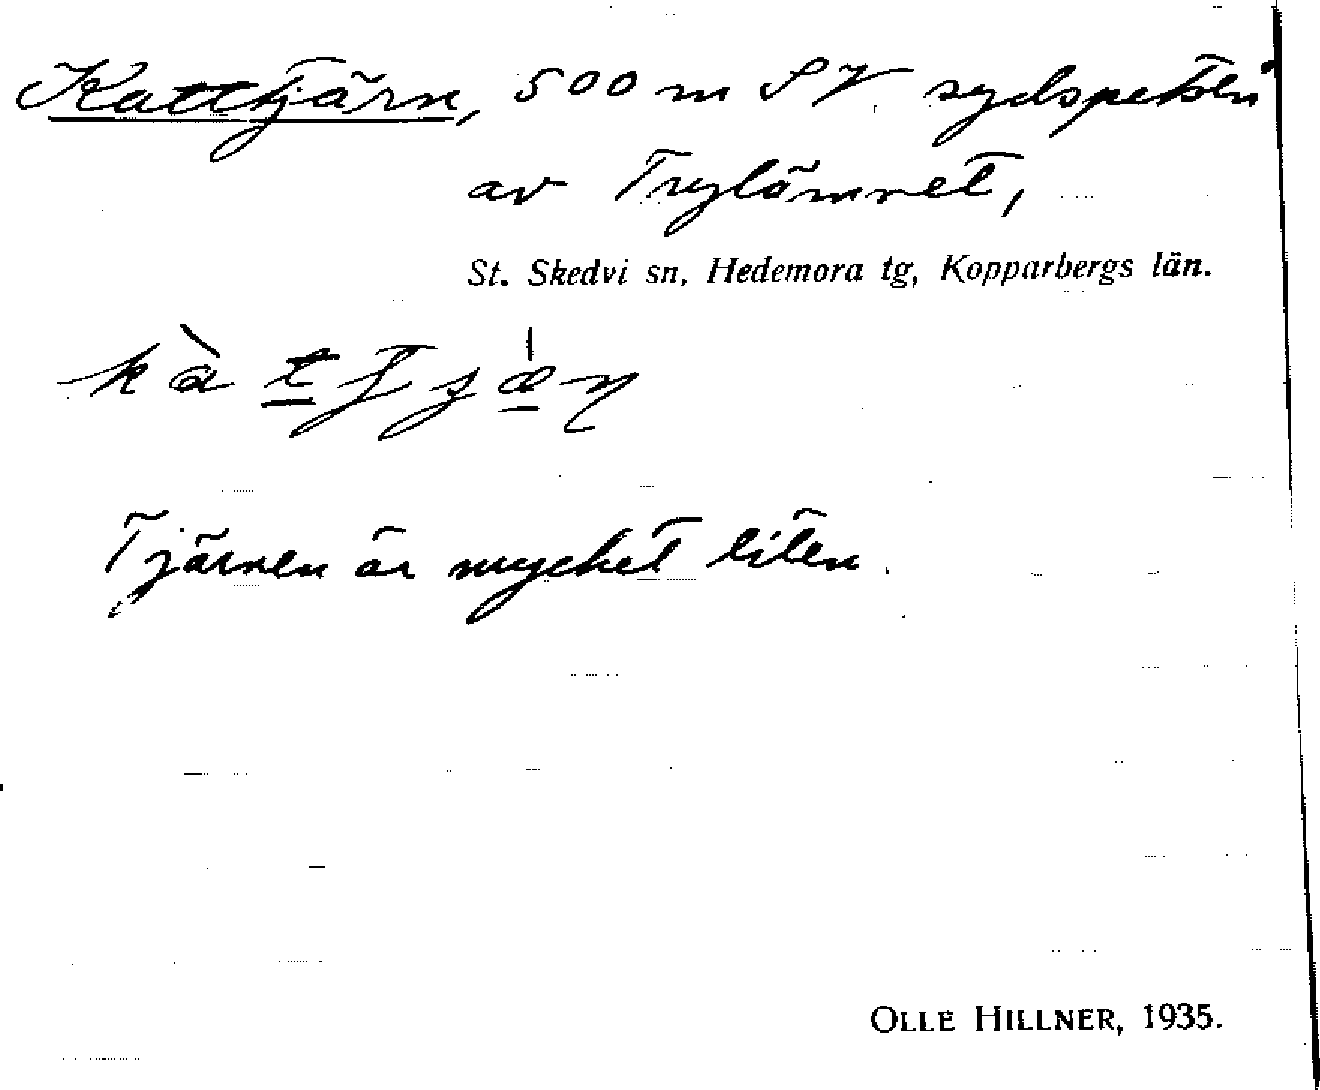 Katttjärn, 500 m SV sydspetsen
av Trylömret,
St. Skedvi sn, Hedemora tg, Kopparbergs län.
Tjärnen är mycket liten.
OLLE HILLNER, 1935.